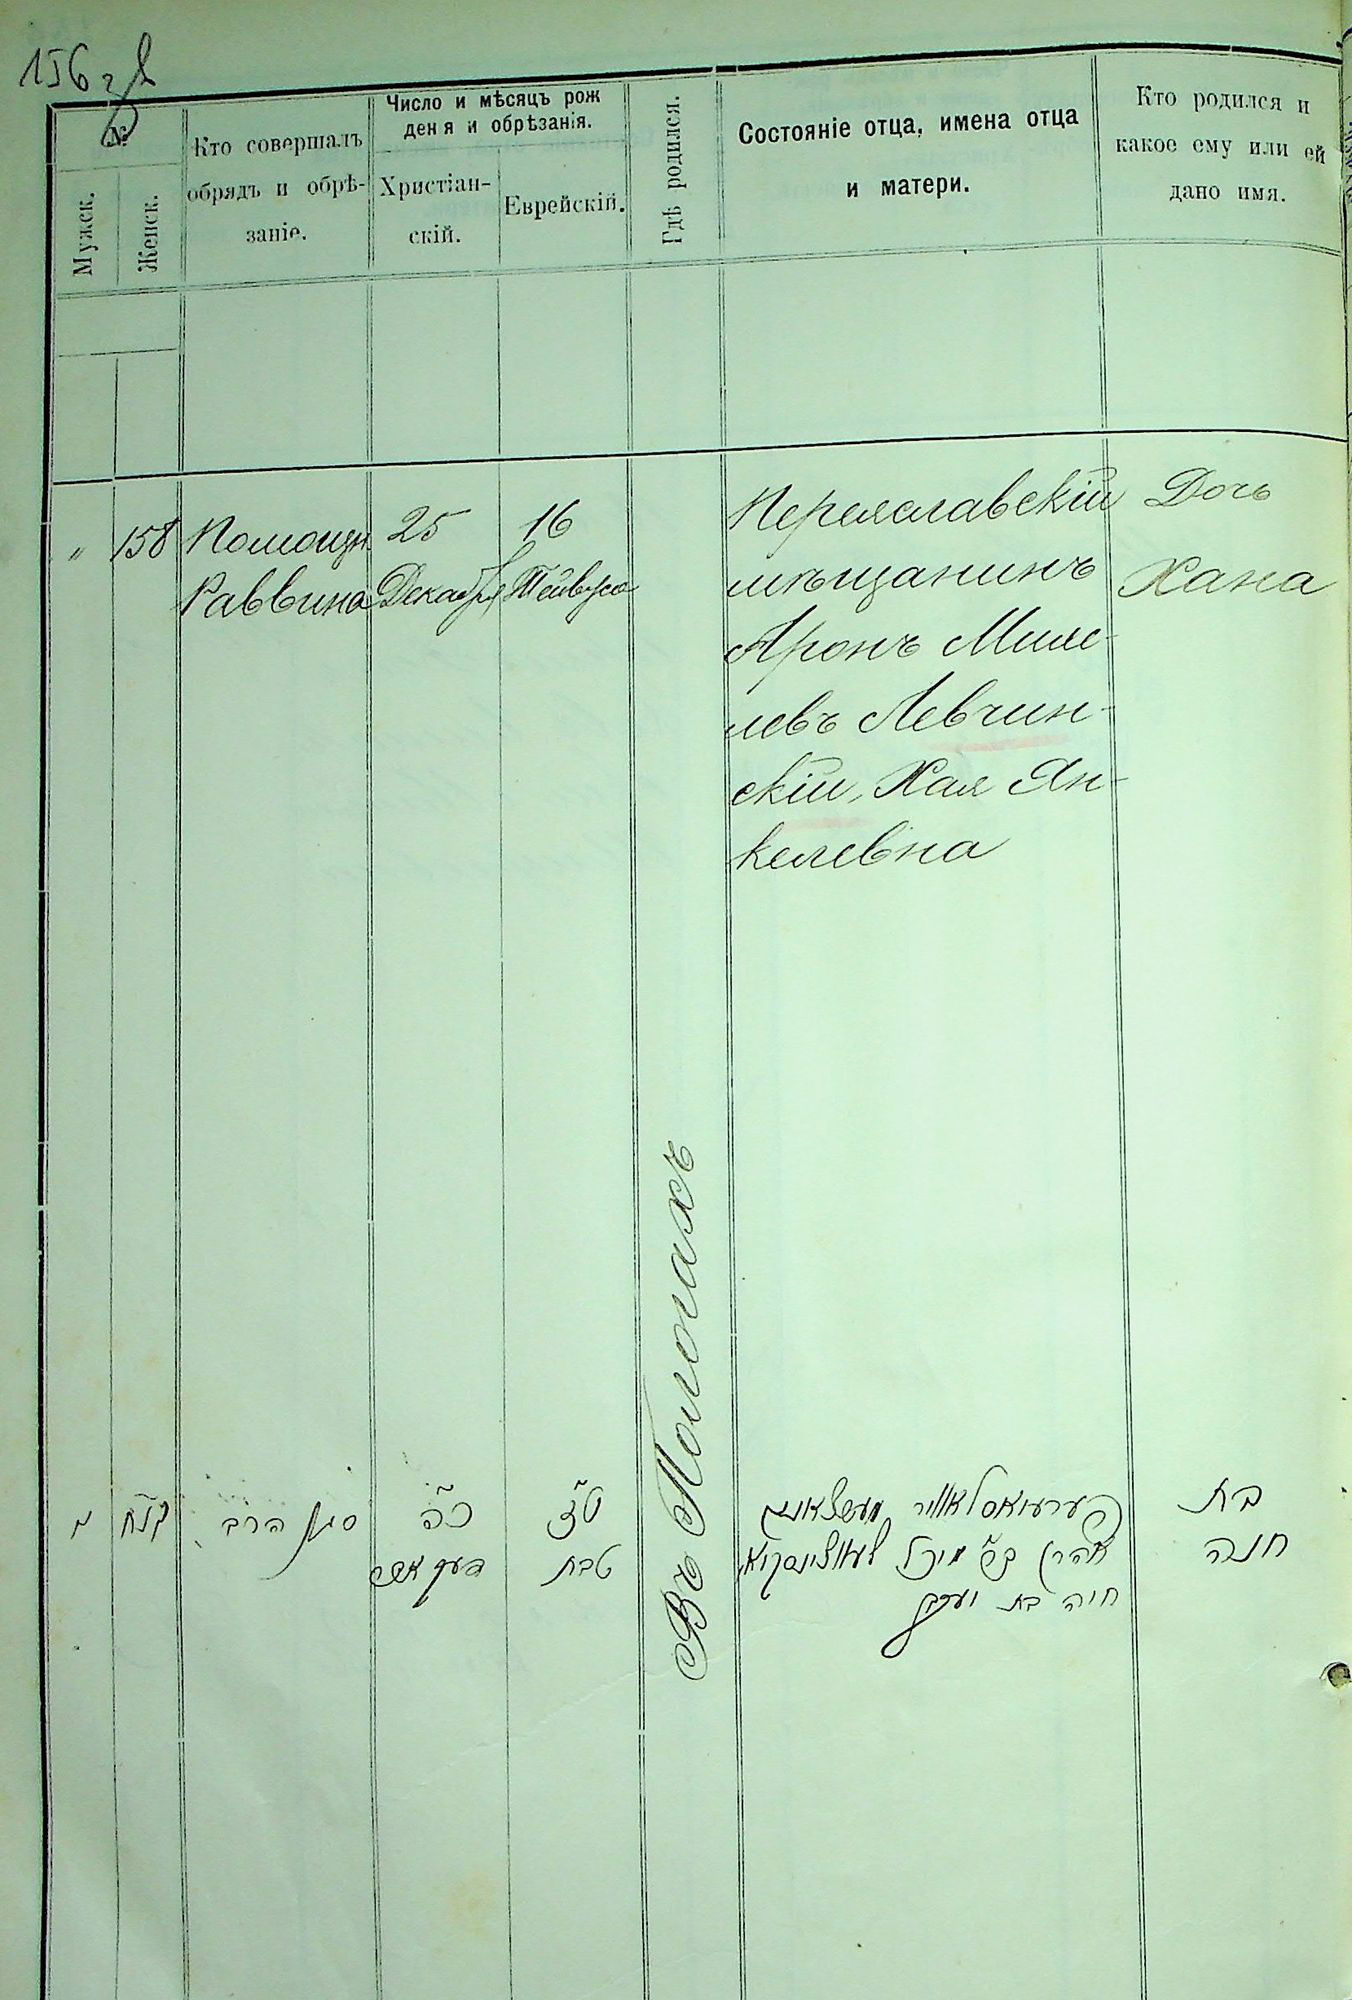 156
№
Мужск.
Женск.
Кто совершалъ
обрядъ и обрѣ-
заніе.
Число и мѣсяцъ рож
денія и обрѣзанія.
Христіан-
скій.
Еврейскій.
Гдѣ родился.
Состояніе отца, имена отца
и матери.
Кто родился и
какое ему или ей
дано имя.
" 158
Помощн.
Раввина
25
Декабря
16
Тейвуса
Переяславскій
мѣщанинъ
Аронъ
левъ Левчин-
скій, Хая Ян-
келевна
Дочь
Хана
Въ Пологахъ
קנח
סגן הרב
כ״ה
דעקאבר
ט״ז
טבת
פערעיאסלאווער מעשצאנין
אהרן ב״ר מיכל לעווצינסקי
חיה בת יעקב
בת
חנה